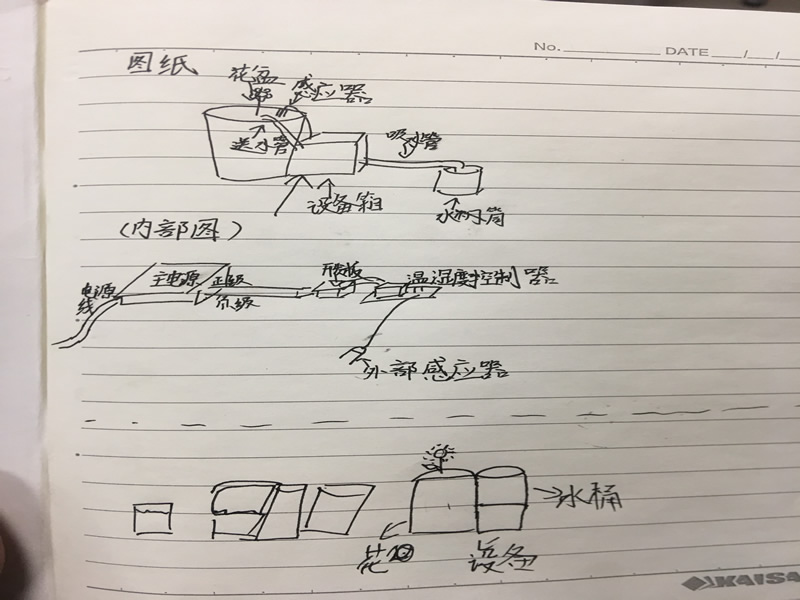 No. DATE / /
图纸
花盆
感应器
送水管
吸水管
设备箱
水桶
(内部图)
电源线
主电源
正级
负级
开关板
温湿度控制器
外部感应器
水桶
花
设备
KAISA